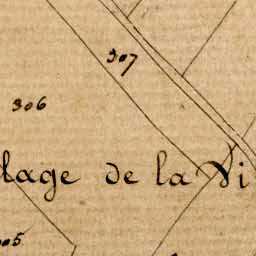 307
306
lage de la Vi